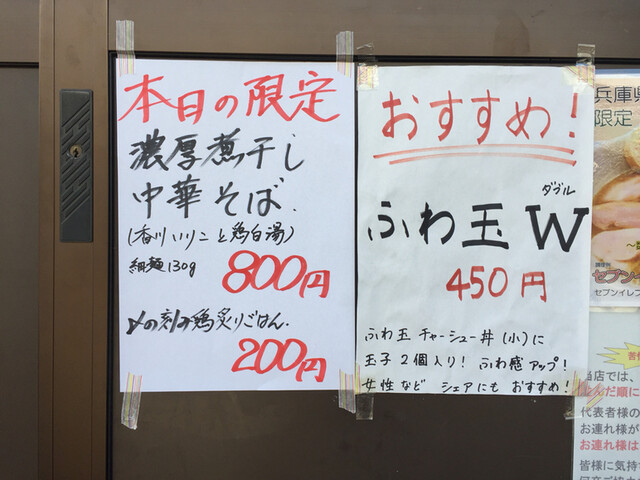 本日の限定
濃厚煮干し
中華そば.
(香川いりこと鶏白湯)
細麺130g 800円
〆の刻み鶏炙りごはん.
200円
おすすめ!
ダブル
ふわ玉W
450円
ふわ玉チャーシュー丼(小)に
玉子2個入り! ふわ感アップ!
女性など シェアにもおすすめ!
兵庫県
限定
セブンイレブ
当店では、
代表者様の
お連れ様が
お連れ様は
皆様に気持